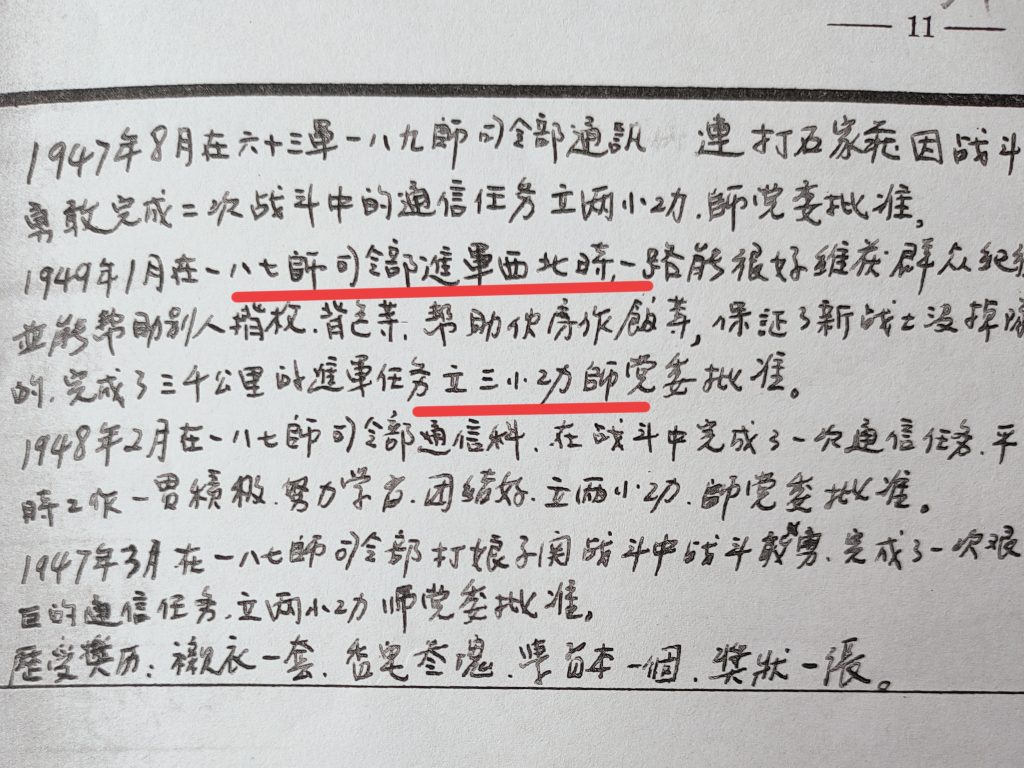 — 11 —
1947年8月在六十三軍一八九師司令部通訊 連打石家莊因战斗
勇敢完成二次战斗中的通信任务立两小功.師党委批准,
1949年1月在一八七師司令部進軍西北時,一路能很好維获群众纪
並能帮助别人揹枚.背包等.帮助伙房作飯等,保证了新战士没掉隊
的.完成了三千公里的進軍任务立三小功師党委批准。
1948年2月在一八七師司令部通信科.在战斗中完成了一次通信任务.平
時工作一貫積极.努力学習.团结好.立两小功.師党委批准。
1947年3月在一八七師司令部打娘子関战斗中战斗勇.完成了一次艰
巨的通信任务.立两小功师党委批准。
歷受奬历:襯衣一套.香皂叁塊.學習本一個.奬狀一張。